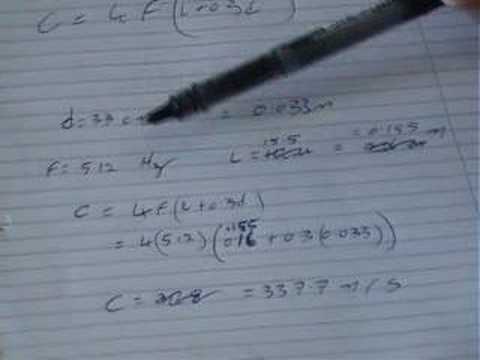 C = 4F(L+0.3d)
d = 3.3 cm = 0.033m
F = 512 Hz L = 15.5 = 0.155 m
C = 4F(L+0.3d)
= 4(512)(.155 + 0.3(0.033))
C = = 337.7 m/s